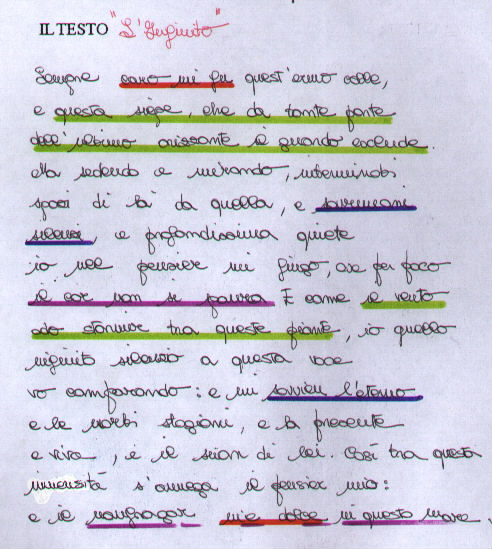 IL TESTO "L'Infinito"
Sempre caro mi fu quest'ermo colle,
e questa siepe, che da tanta parte
dell'ultimo orizzonte il guardo esclude.
Ma sedendo e mirando, interminati
spazi di là da quella, e sovrumani
silenzi, e profondissima quiete
io nel pensier mi fingo, ove per poco
il cor non si paura. E come il vento
odo stormir tra queste piante, io quello
infinito silenzio a questa voce
vo comparando: e mi sovvien l'eterno
e le morti stagioni, e la presente
e viva, e il suon di lei. Così tra questa
immensità s'annega il pensier mio:
e il naufragar m'è dolce in questo mare.